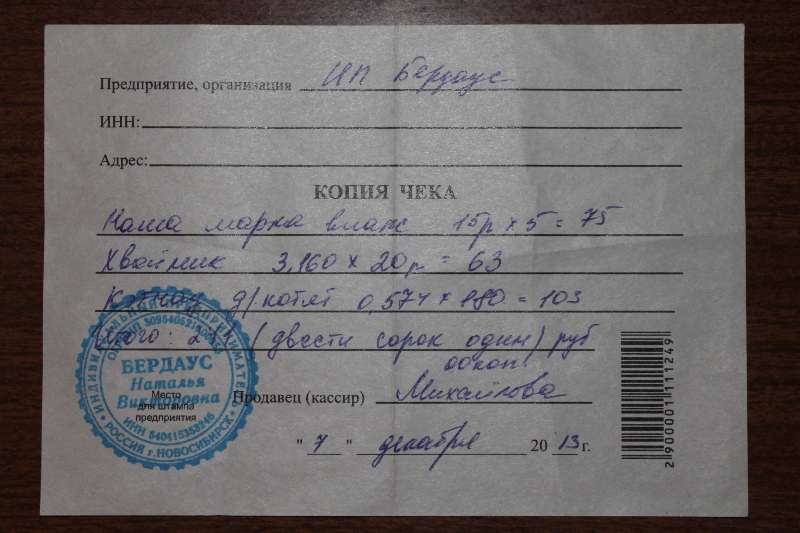 Предприятие, организация ИП Бердаус
ИНН:
Адрес:
КОПИЯ ЧЕКА
Наша марка влаж 15р х 5 = 75
Хвойник 3,160 х 20р = 63
д/котят 0,574 х 180 = 103
Итого: 241 (двести сорок один) руб
00 коп
Продавец (кассир) Михайлова
"7" декабря 2013 г.
Место
для штампа
предприятия
ИНДИВИДУАЛЬНЫЙ ПРЕДПРИНИМАТЕЛЬ
БЕРДАУС
Наталья
Викторовна
ИНН 540415353246
РОССИЯ г.НОВОСИБИРСК
2 900001 111249